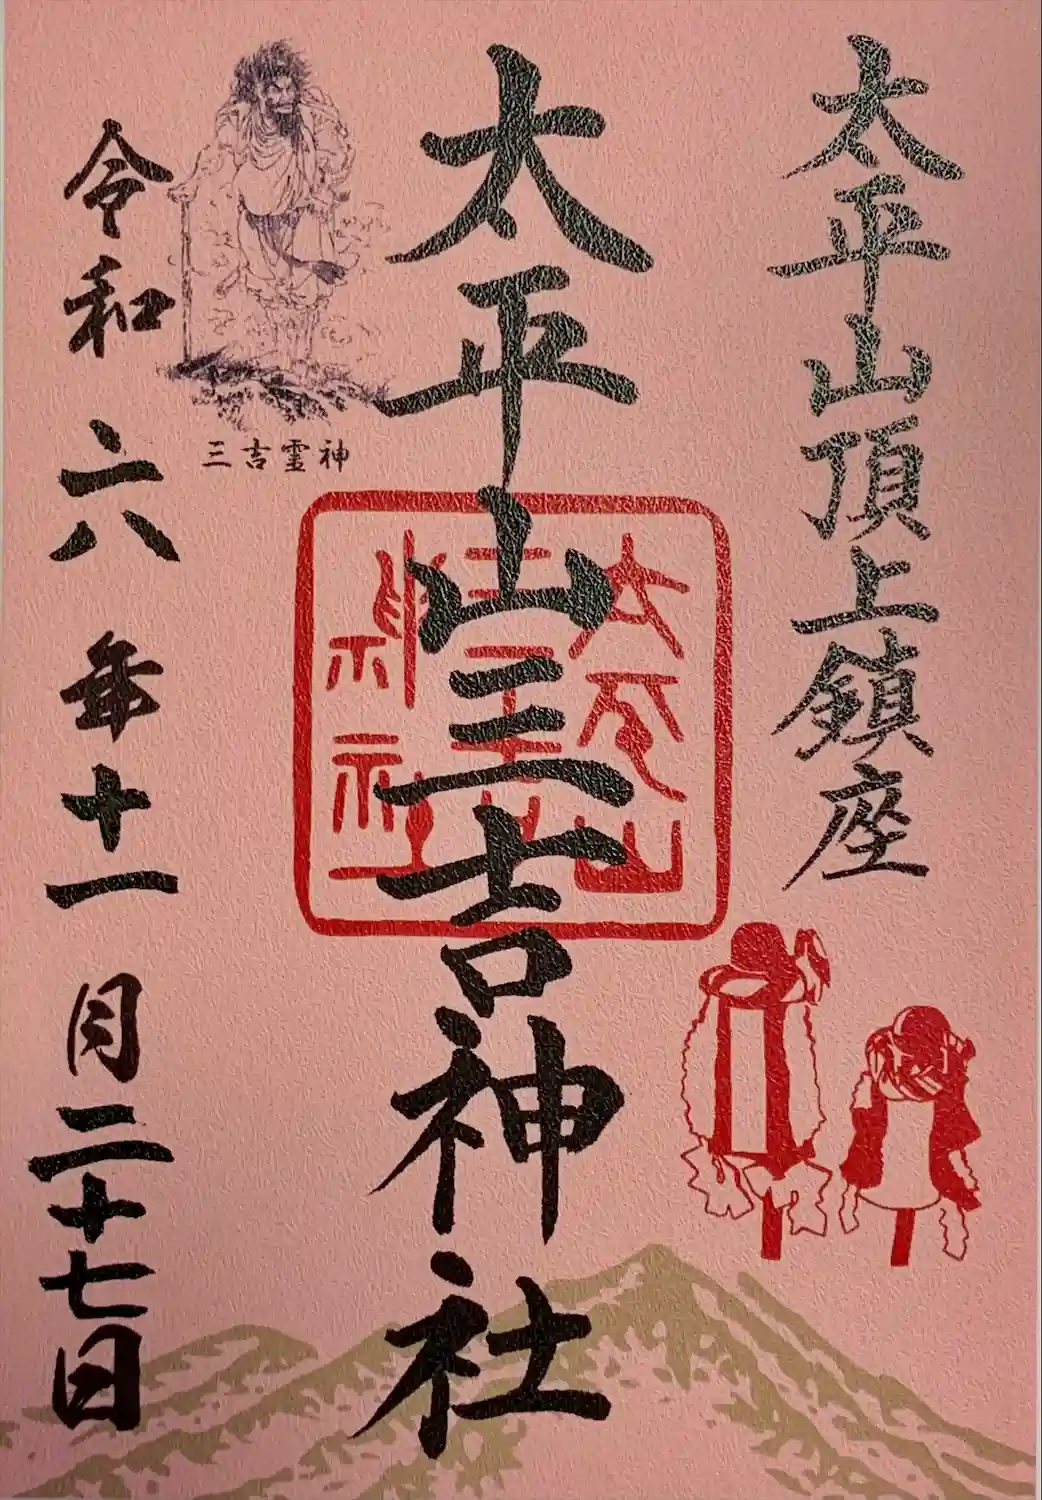 太平山頂上鎮座
太平山三吉神社
太平山
三吉
神社
三吉霊神
令和六年十一月二十七日